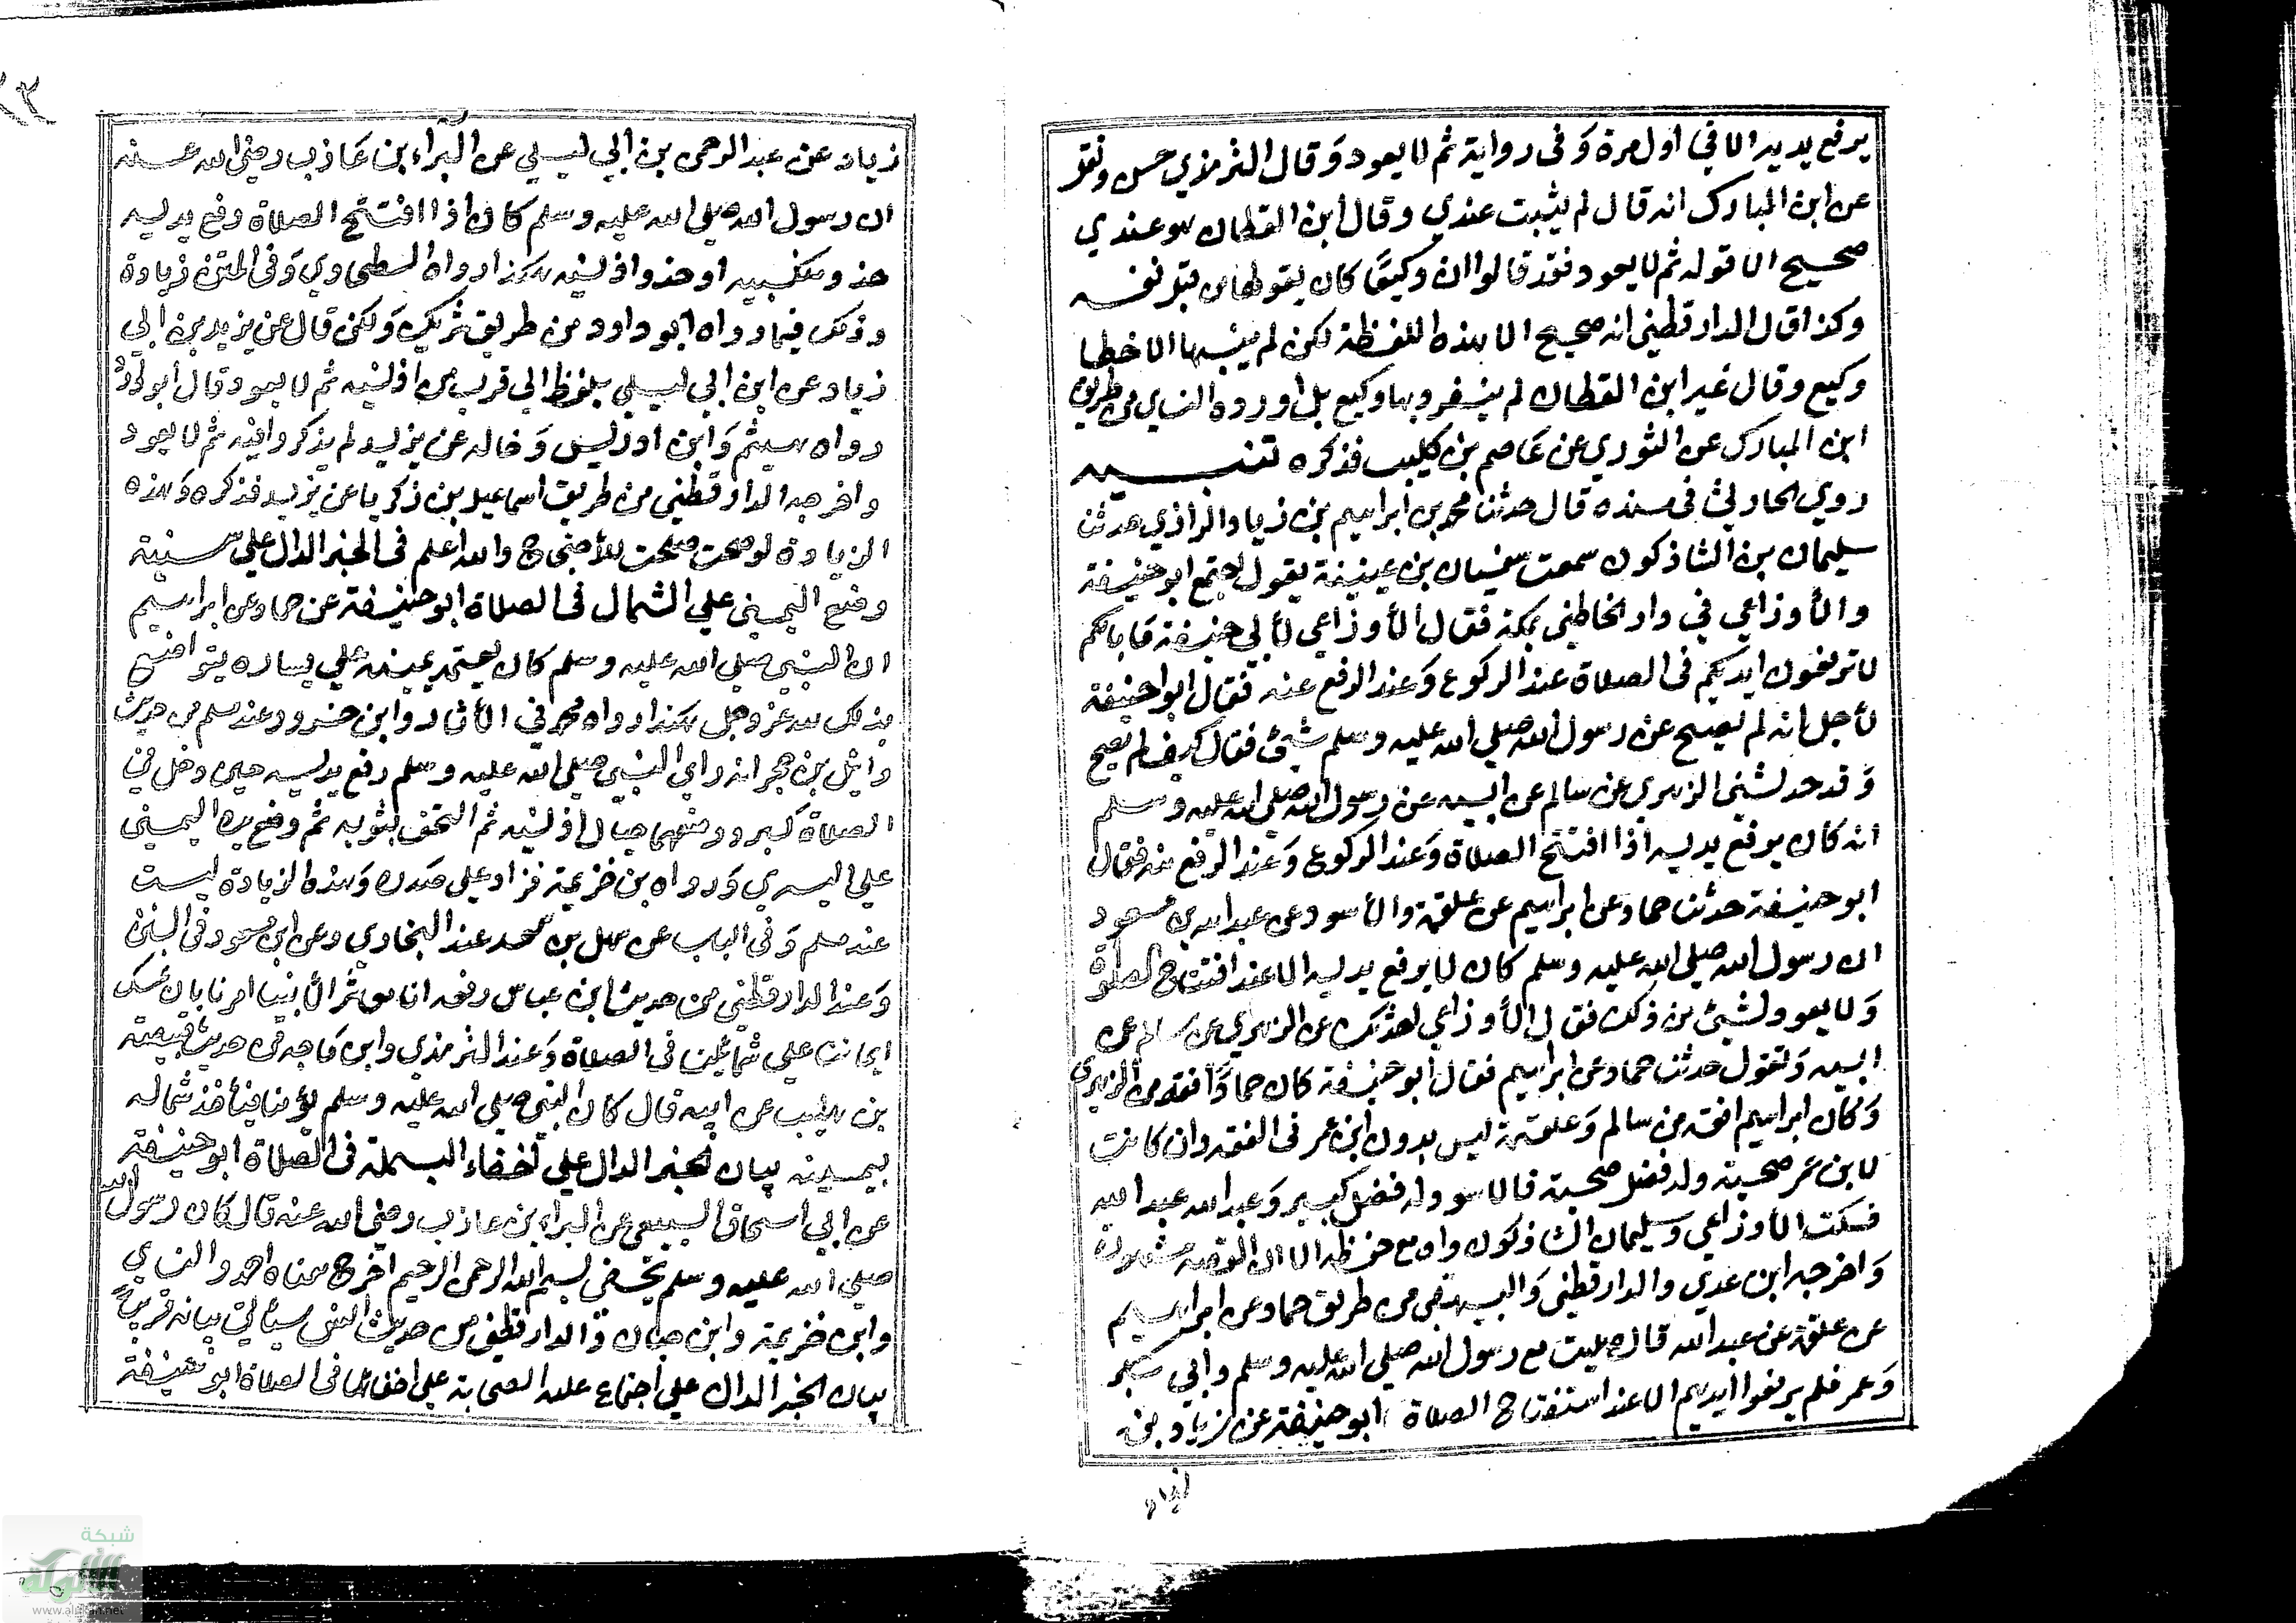 يرفع يديه الا في اول مرة وفى رواية ثم لا يعود وقال الترمذي حسن ونقل
عن ابن المبارك انه قال لم يثبت عندي وقال ابن القطان هو عندي
صحيح الا قوله ثم لا يعود فقد قالوا ان وكيعًا كان يقولها من قبل نفسه
وكذا قال الدارقطني انه صحيح الا هذه اللفظة لكن لم ينسبها الا خطا
وكيع وقال غير ابن القطان لم ينفرد بها وكيع بل اورده النساي من طريق
ابن المبارك عن الثوري عن عاصم بن كليب فذكره تنبيه
روي الحارثي فى مسنده قال حدثنا محمد بن ابراهيم بن زياد الرازي حدثنا
سليمان بن الشاذكون سمعت سفيان بن عيينة يقول اجتمع ابو حنيفة
والأوزاعي في دار الحناطين بمكة فقال الأوزاعي لأبي حنيفة ما بالكم
لا ترفعون ايديكم فى الصلاة عند الركوع وعند الرفع عنه فقال ابو حنيفة
لأجل انه لم يصح عن رسول الله صلي الله عليه وسلم شيئ فقال كيف لم يصح
وقد حدثني الزهري عن سالم عن ابيه عن رسول الله صلي الله عليه وسلم
انه كان يرفع يديه اذا افتتح الصلاة وعند الركوع وعند الرفع منه فقال
ابو حنيفة حدثنا حماد عن ابراهيم عن علقمة والأسود عن عبد الله بن مسعود
ان رسول الله صلي الله عليه وسلم كان لا يرفع يديه الا عند افتتاح الصلوة
ولا يعود لشيئ من ذلك فقال الأوزاعي احدثك عن الزهري عن سالم عن
ابيه وتقول حدثنا حماد عن ابراهيم فقال ابو حنيفة كان حماد افقه من الزهري
وكان ابراهيم افقه من سالم وعلقمة ليس بدون ابن عمر فى الفقه وان كانت
لابن عمر صحبة وله فضل صحبة فالاسود له فضل كبير وعبد الله عبد الله
فسكت الأوزاعي وسليمان الشاذكون واه مع حفظه الا ان القصة مشهورة
واخرجه ابن عدي والدارقطني والبيهقي من طريق حماد عن ابراهيم
عن علقمة عن عبد الله قال صليت مع رسول الله صلي الله عليه وسلم وأبي بكر
وعمر فلم يرفعوا ايديهم الا عند استفتاح الصلاة ابو حنيفة عن زياد بن
زياد عن عبد الرحمن بن ابي ليلي عن البراء بن عازب رضي الله عنه
ان رسول الله صلي الله عليه وسلم كان اذا افتتح الصلاة رفع يديه
حذو منكبيه او حذو اذنيه هكذا رواه الطحاوي وفى المتن زيادة
وذلك فيما رواه ابو داود من طريق شريك ولكن قال عن يزيد بن ابي
زياد عن ابن ابي ليلي بلفظ الي قرب من اذنيه ثم لا يعود قال ابو داود
رواه هشيم وابن ادريس وخالد عن يزيد لم يذكروا فيه ثم لا يعود
واخرجه الدارقطني من طريق اسماعيل بن زكريا عن يزيد فذكره وهذه
الزيادة لو صحت صلحت للأحتجاج والله اعلم فى الخبر الدال علي سنية
وضع اليميني علي الشمال فى الصلاة ابو حنيفة عن حماد عن ابراهيم
ان النبي صلي الله عليه وسلم كان يعتمد بيمينه علي يساره يتواضع
بذلك لله عز وجل هكذا رواه محمد في الأثار وابن خسرو وعند مسلم من حديث
وائل بن حجر انه راي النبي صلي الله عليه وسلم رفع يديه حين دخل في
الصلاة كبر ووضعهما حيال اذنيه ثم التحف بثوبه ثم وضع يده اليميني
علي اليسري ورواه بن خزيمة فزاد علي صدره وهذه الزيادة ليست
عند مسلم وفى الباب عن سهل بن سعد عند البخاري وعن ابن مسعود فى السنن
وعند الدارقطني من حديث ابن عباس رفعه انا معشر الأنبيا امرنا بان نمسك
ايماننا علي شمائلنا فى الصلاة وعند الترمذي وابن ماجه من حديث قبيصة
بن هلب عن ابيه قال كان النبي صلي الله عليه وسلم يؤمنا فيأخذ شماله
بيمينه بيان الخبر الدال علي اخفاء البسملة فى الصلاة ابو حنيفة
عن ابي اسحاق السبيعي عن البراء بن عازب رضي الله عنه قال كان رسول الله
صلي الله عليه وسلم يخفى بسم الله الرحمن الرحيم اخرج معناه احمد والنساي
وابن خزيمة وابن حبان والدارقطني من حديث انس سيأتي بيانه قريبًا
بيان الخبر الدال علي اجماع علية الصحابة علي اخفائها فى الصلاة ابو حنيفة
زياد
شبكة
الألوكة
www.alukah.net